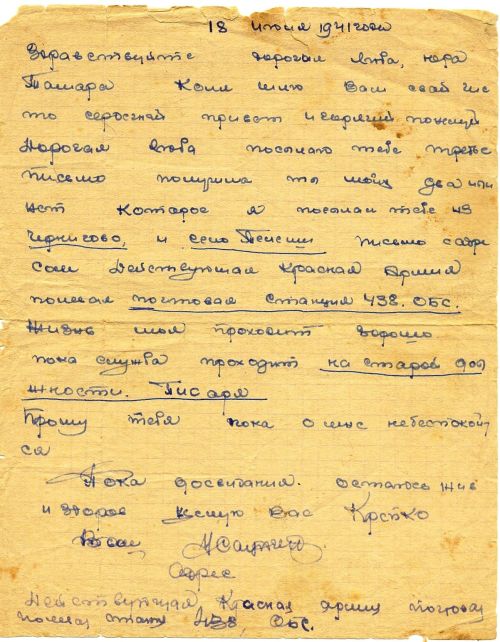 18 июля 1941 года
Здравствуйте дорогая Люба, Юра
Тамара Коля шлю Вам свой чис
то сердсчный привет и горячий поцелуй
Дорогая Люба посылаю тебе третье
письмо получила ты мои два или
нет которое я посылал тебе из
Чернигово, и село Пенсиш письмо с адре
сом Действующая Красная Армия
полевая почтовая станция 438. ОБС.
Жизнь моя проходит хорошо
пока служба проходит на старой дол
жности. Писаря
Прошу тебя пока о мне небеспокой
ся
Пока досвидания. остаюсь жив
и здоров целую Вас Крепко
Ваш
Адрес
Действующая Красная армия почтовая
полевая станц 438, ОБС.